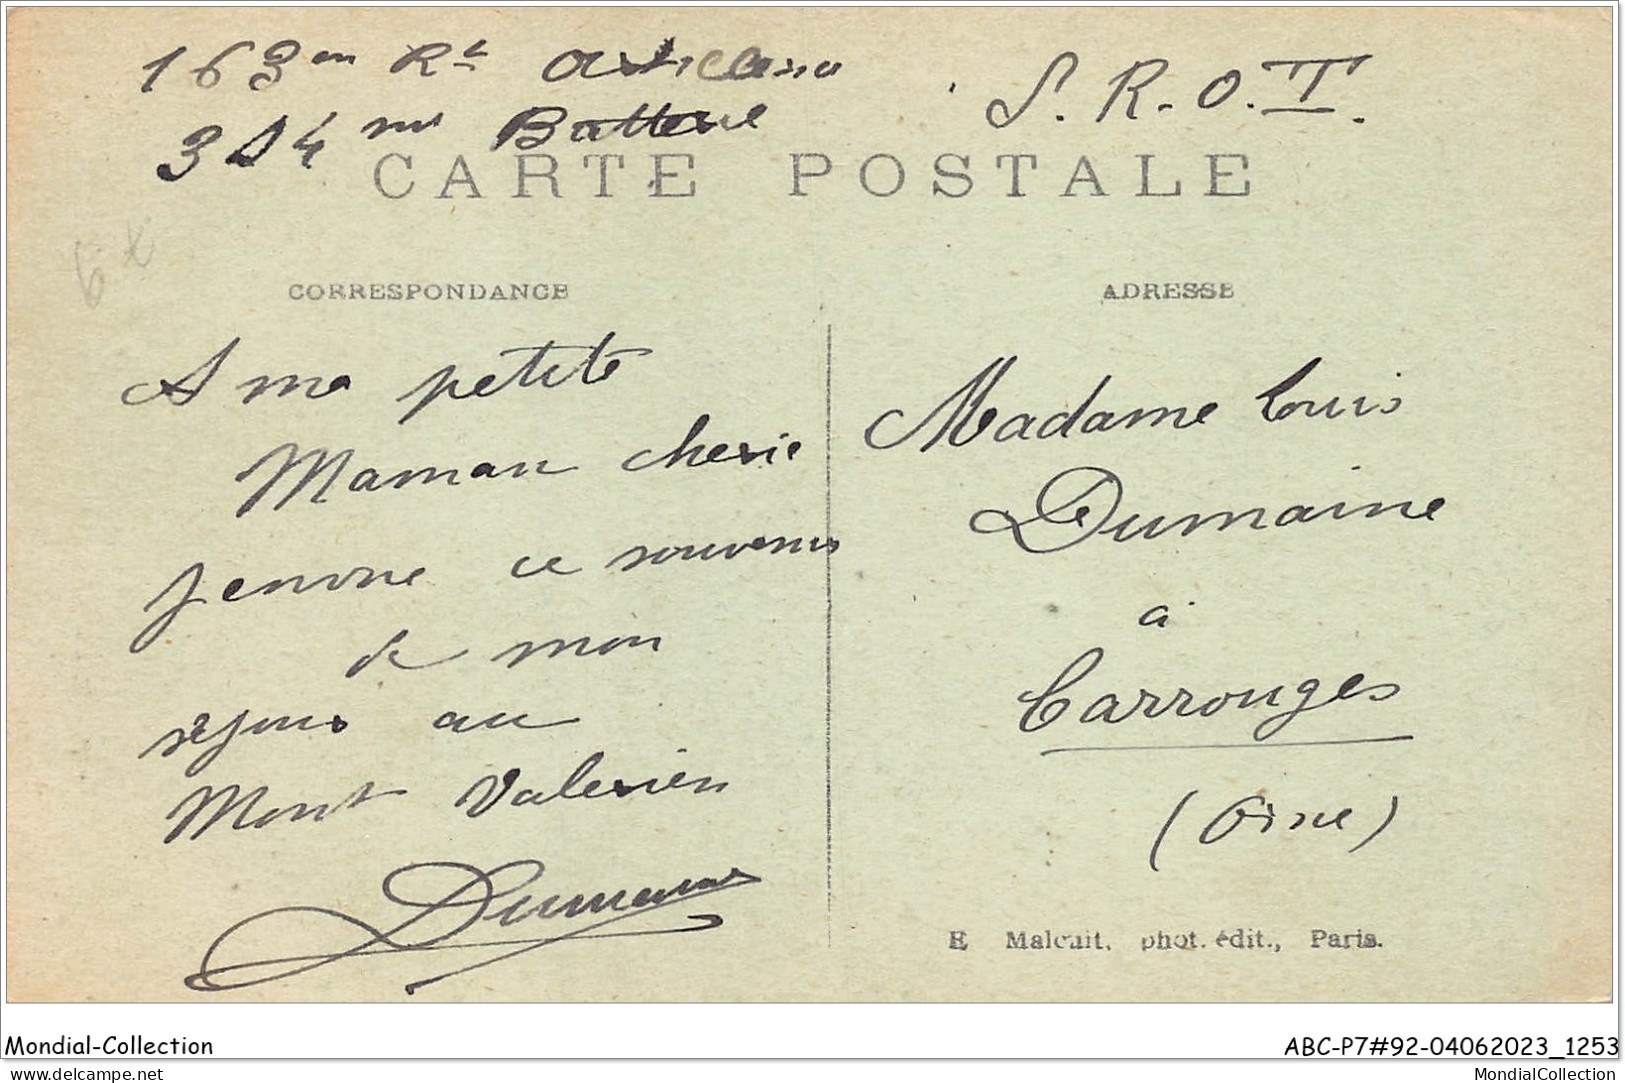 163em Rt Artillerie
S. R. O. T.
314me Batterie
CARTE POSTALE
6x
CORRESPONDANCE
ADRESSE
A ma petite
Maman cherie
J envoie ce souvenir
de mon
sejour au
Mont Valerien
Dumaine
Madame Louis
Dumaine
à
Carrouges
(Orne)
E Malcuit, phot. édit., Paris.
Mondial-Collection
ABC-P7#92-04062023_1253
delcampe.net
MondialCollection